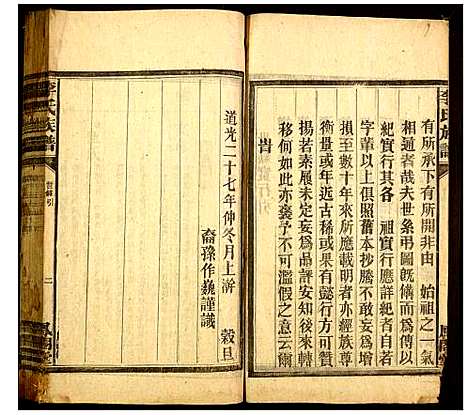 李氏族譜
有所承下有所開非由 始祖之一氣
相通者哉夫世系弔圖既備而爲傳以
紀實行其各 祖實行應詳紀者自某
字輩以上俱照舊本抄謄不敢妄爲增
損至數十年來所應載明者亦經族尊
衡量或年近古稀或果有懿行方爲贊
揚若素履未定妄爲品評安知後來轉
移何如此亦褒予不可濫假之意云爾
旹
道光二十七年仲冬月上澣 榖旦
裔孫作巍謹識
李氏族譜
引
二